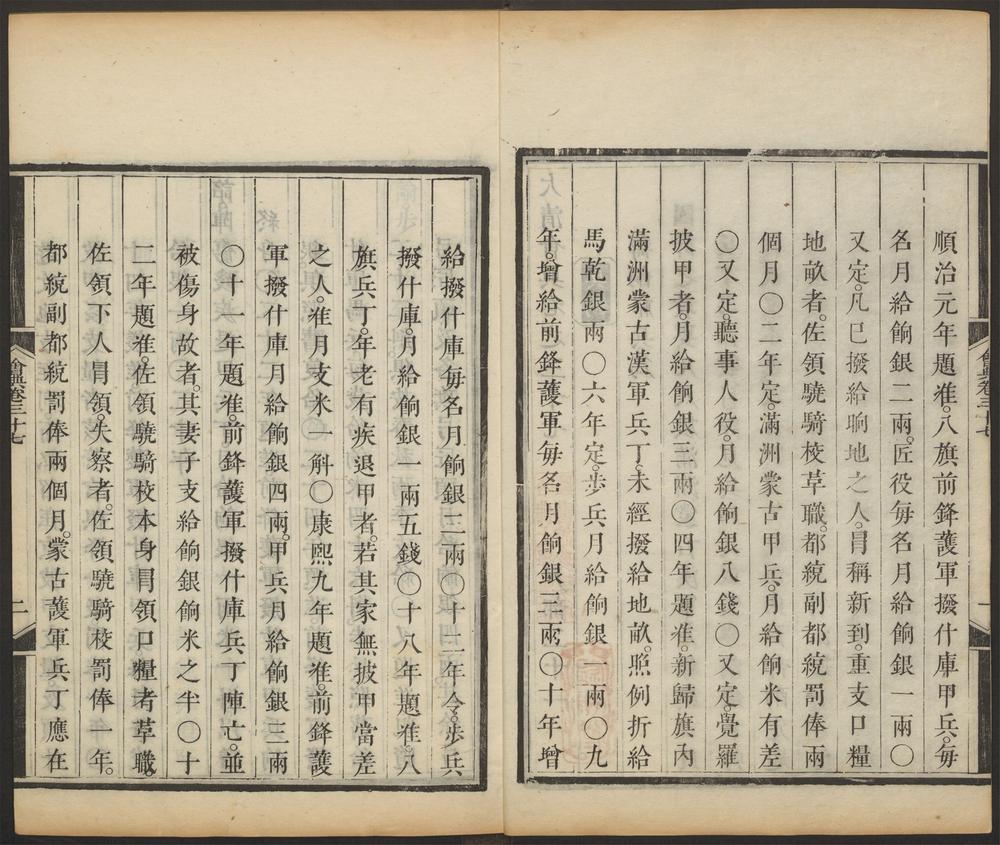 順治元年題准。八旗前鋒護軍撥什庫甲兵。每
名月給餉銀二兩。匠役每名月給餉銀一兩〇
又定。凡已撥給晌地之人。冐稱新到。重支口糧
地畝者。佐領驍騎校革職。都統副都統罰俸兩
個月〇二年定。滿洲蒙古甲兵。月給餉米有差
〇又定。聽事人役。月給餉銀八錢〇又定。覺羅
披甲者。月給餉銀三兩〇四年題准。新歸旗內
滿洲蒙古漢軍兵丁。未經撥給地畝。照例折給
馬乾銀兩〇六年定。步兵月給餉銀一兩〇九
年。增給前鋒護軍每名月餉銀三兩〇十年增
會典卷三十七
一
給撥什庫每名月餉銀三兩〇十二年令。步兵
撥什庫。月給餉銀一兩五錢〇十八年題准。八
旗兵丁。年老有疾退甲者。若其家無披甲當差
之人。准月支米一斛〇康熙九年題准。前鋒護
軍撥什庫月給餉銀四兩。甲兵月給餉銀三兩
〇十一年題准。前鋒護軍撥什庫兵丁陣亡。並
被傷身故者。其妻子支給餉銀餉米之半〇十
二年題准。佐領驍騎校本身冐領口糧者革職
佐領下人冐領。失察者。佐領驍騎校罰俸一年。
都統副都統罰俸兩個月。蒙古護軍兵丁應在
會典卷三十七
二